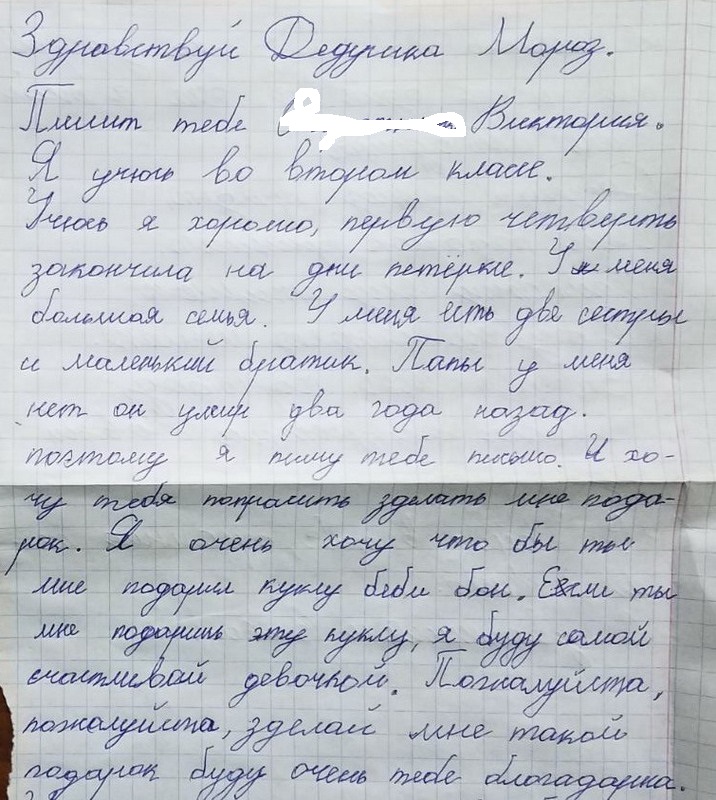 Здравствуй Дедушка Мороз.
Пишит тебе Виктория.
Я учюсь во втором класе.
Учюсь я хорошо, первую четверть
закончила на дни петёрке. У меня
большая семья. У меня есть две сестры
и маленький братик. Папы у меня
нет он умир два года назад.
поэтому я пишу тебе письмо. И хо-
чу тебя попрасить зделать мне пода-
рок. Я очень хочу что бы ты
мне подарил куклу беби бон. Если ты
мне подаришь эту куклу, я буду самой
счастливай девочкой. Пожалуйста,
пожалуйста, зделай мне такой
подарок буду очень тебе благадарна.